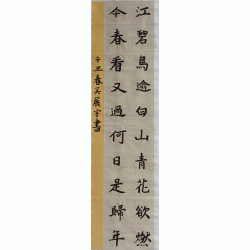 江碧鳥逾白山青花欲燃
今春看又過何日是歸年
辛丑春吳广言書